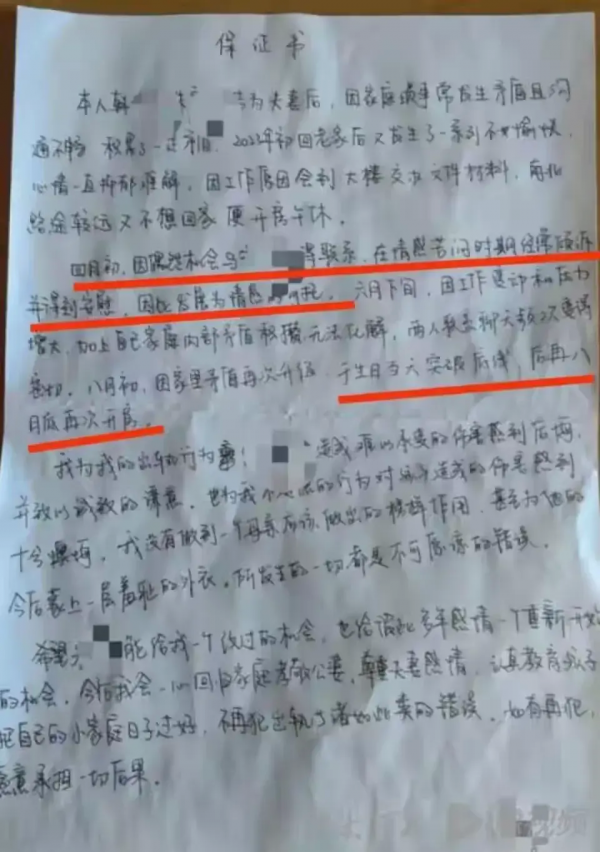 保证书
本人韩 与 为夫妻后，因家庭琐事常发生矛盾且沟
通不畅 积累了一定矛盾，2022年初回老家后又发生了一系列不愉快，
心情一直抑郁难解，因工作原因会到大楼交流文件材料，
路途较远又不想回家便开房午休。
四月初，因偶然机会与 得联系，在情感苦闷时期经常倾诉
并得到安慰，因此发展为情感 六月下旬，因工作变动和压力
增大，加上自己家庭内部矛盾积攒无法化解，两人 聊天
密切，八月初，因家里矛盾再次升级，于生日当天突破底线，后再八
月底再次开房。
我为我的出轨行为 ！ 造成难以承受的伤害感到后悔，
并致以诚致的谦意，也为我 的行为对孩子造成的伤害感到
十分懊悔，我没有做到一个母亲应该做出的榜样作用，甚至为他的
今后蒙上一层羞耻的外衣。所发生的一切都是不可原谅的错误。
希望 能给我一个改过的机会，也给 多年感情一个重新开始
的机会，今后我会一心回归家庭孝敬公婆，尊重夫妻感情，认真教育孩子
把自己的小家庭日子过好，不再犯出轨了诸如此类的错误，如有再犯，
愿意承担一切后果。
视频